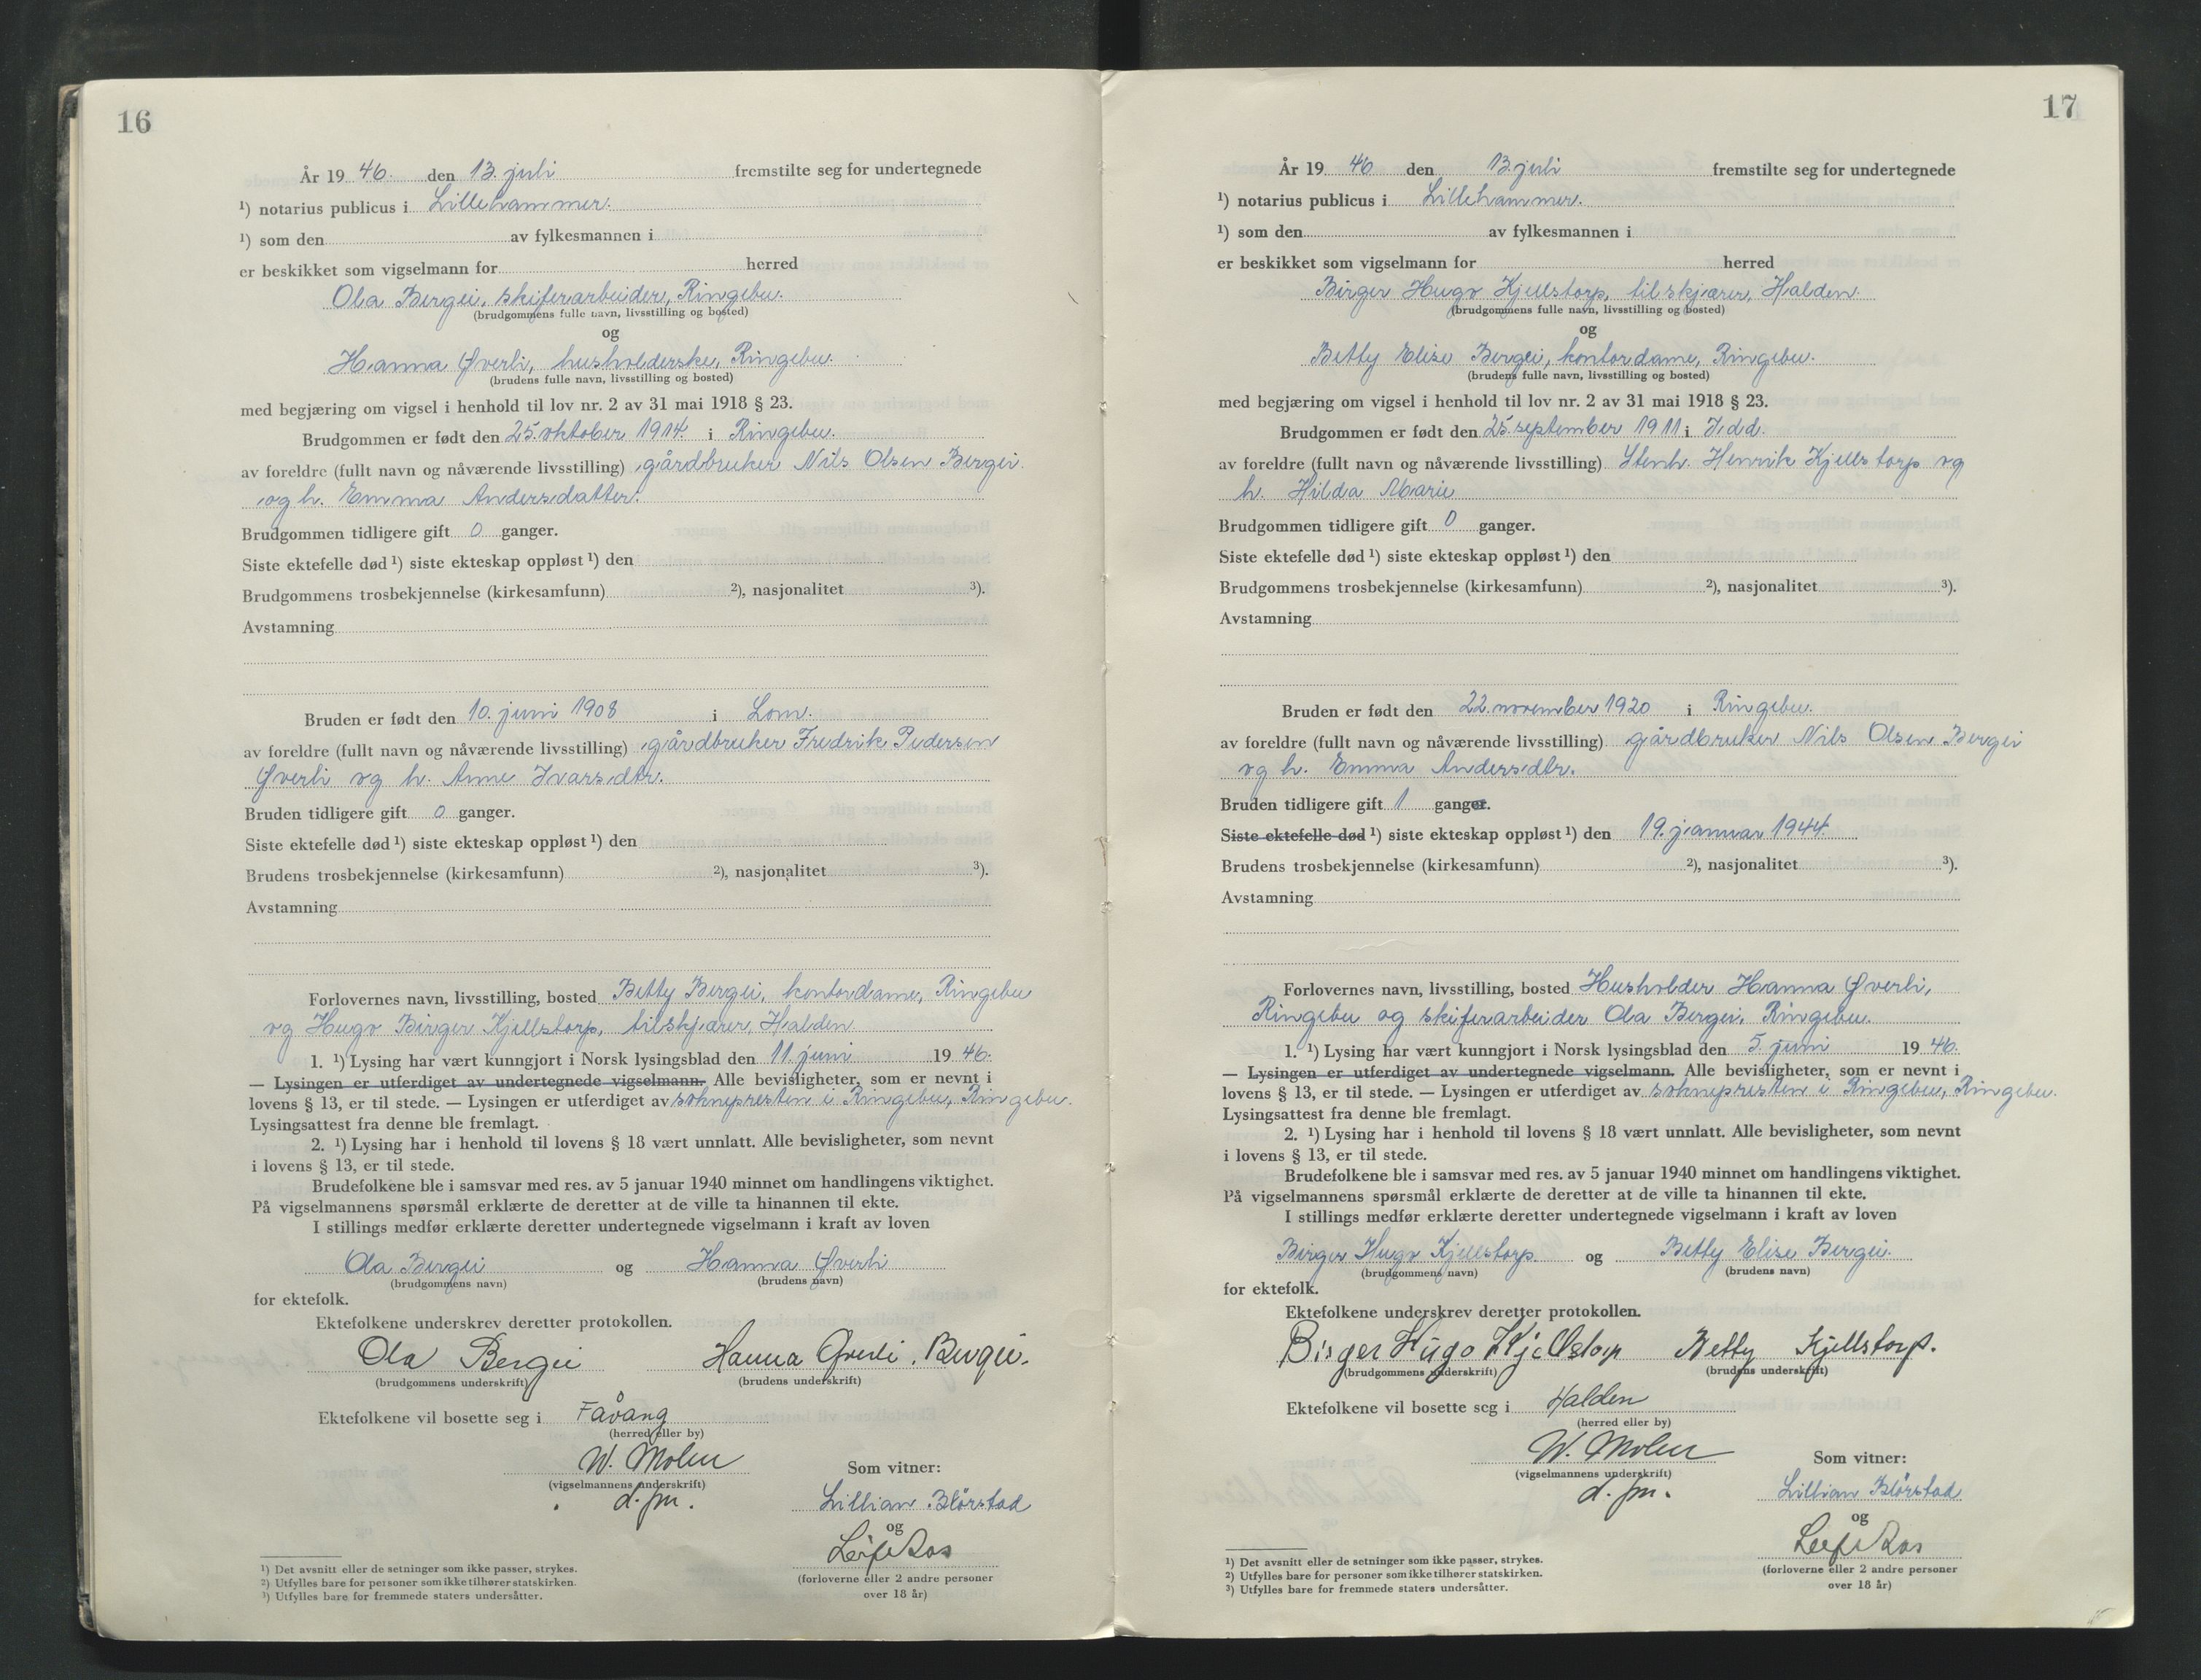 16
År 19 46. den 13. juli fremstilte seg for undertegnede
¹) notarius publicus i Lillehammer.
¹) som den av fylkesmannen i
er beskikket som vigselmann for herred
Ola Bergei, skiferarbeider, Ringebu.
(brudgommens fulle navn, livsstilling og bosted)
og
Hanna Øverli, husholderske, Ringebu.
(brudens fulle navn, livsstilling og bosted)
med begjæring om vigsel i henhold til lov nr. 2 av 31 mai 1918 § 23.
Brudgommen er født den 25. oktober 1914. i Ringebu.
av foreldre (fullt navn og nåværende livsstilling) gårdbruker Nils Olsen Bergei
og h. Emma Andersdatter.
Brudgommen tidligere gift 0 ganger.
Siste ektefelle død ¹) siste ekteskap oppløst ¹) den
Brudgommens trosbekjennelse (kirkesamfunn) ²), nasjonalitet ³).
Avstamning
Bruden er født den 10. juni 1908 i Lom.
av foreldre (fullt navn og nåværende livsstilling) gårdbruker Fredrik Pedersen
Øverli og h. Anne Ivarsdtr.
Bruden tidligere gift 0 ganger.
Siste ektefelle død ¹) siste ekteskap oppløst ¹) den
Brudens trosbekjennelse (kirkesamfunn) ²), nasjonalitet ³).
Avstamning
Forlovernes navn, livsstilling, bosted Betty Bergei, kontordame, Ringebu
og Hugo Birger Kjellstorp, tilskjærer, Halden
1. ¹) Lysing har vært kunngjort i Norsk lysingsblad den 11. juni 19 46.
— Lysingen er utferdiget av undertegnede vigselmann. Alle bevisligheter, som er nevnt i
lovens § 13, er til stede. — Lysingen er utferdiget av soknepresten i Ringebu, Ringebu.
Lysingsattest fra denne ble fremlagt.
2. ¹) Lysing har i henhold til lovens § 18 vært unnlatt. Alle bevisligheter, som nevnt
i lovens § 13, er til stede.
Brudefolkene ble i samsvar med res. av 5 januar 1940 minnet om handlingens viktighet.
På vigselmannens spørsmål erklærte de deretter at de ville ta hinannen til ekte.
I stillings medfør erklærte deretter undertegnede vigselmann i kraft av loven
Ola Bergei og Hanna Øverli
(brudgommens navn) (brudens navn)
for ektefolk.
Ektefolkene underskrev deretter protokollen.
Ola Bergei Hanna Øverli. Bergei.
(brudgommens underskrift) (brudens underskrift)
Ektefolkene vil bosette seg i Fåvang
(herred eller by)
W. Molin
(vigselmannens underskrift)
d. fm.
Som vitner:
Lillian Blörstad
og
Leif Aas
(forloverne eller 2 andre personer
over 18 år)
¹) Det avsnitt eller de setninger som ikke passer, strykes.
²) Utfylles bare for personer som ikke tilhører statskirken.
³) Utfylles bare for fremmede staters undersåtter.
17
År 19 46 den 13. juli fremstilte seg for undertegnede
¹) notarius publicus i Lillehammer.
¹) som den av fylkesmannen i
er beskikket som vigselmann for herred
Birger Hugo Kjellstorp, tilskjærer, Halden.
(brudgommens fulle navn, livsstilling og bosted)
og
Betty Elise Bergei, kontordame, Ringebu.
(brudens fulle navn, livsstilling og bosted)
med begjæring om vigsel i henhold til lov nr. 2 av 31 mai 1918 § 23.
Brudgommen er født den 25. september 1911 i Idd.
av foreldre (fullt navn og nåværende livsstilling) Stenh. Henrik Kjellstorp og
h. Hilda Marie
Brudgommen tidligere gift 0 ganger.
Siste ektefelle død ¹) siste ekteskap oppløst ¹) den
Brudgommens trosbekjennelse (kirkesamfunn) ²), nasjonalitet ³).
Avstamning
Bruden er født den 22. november 1920 i Ringebu.
av foreldre (fullt navn og nåværende livsstilling) gårdbruker Nils Olsen Bergei
og h. Emma Andersdtr.
Bruden tidligere gift 1 ganger.
Siste ektefelle død ¹) siste ekteskap oppløst ¹) den 19. januar 1944.
Brudens trosbekjennelse (kirkesamfunn) ²), nasjonalitet ³).
Avstamning
Forlovernes navn, livsstilling, bosted Husholder Hanna Øverli,
Ringebu og skiferarbeider Ola Bergei, Ringebu.
1. ¹) Lysing har vært kunngjort i Norsk lysingsblad den 5. juni 19 46.
— Lysingen er utferdiget av undertegnede vigselmann. Alle bevisligheter, som er nevnt i
lovens § 13, er til stede. — Lysingen er utferdiget av soknepresten i Ringebu, Ringebu.
Lysingsattest fra denne ble fremlagt.
2. ¹) Lysing har i henhold til lovens § 18 vært unnlatt. Alle bevisligheter, som nevnt
i lovens § 13, er til stede.
Brudefolkene ble i samsvar med res. av 5 januar 1940 minnet om handlingens viktighet.
På vigselmannens spørsmål erklærte de deretter at de ville ta hinannen til ekte.
I stillings medfør erklærte deretter undertegnede vigselmann i kraft av loven
Birger Hugo Kjellstorp. og Betty Elise Bergei.
(brudgommens navn) (brudens navn)
for ektefolk.
Ektefolkene underskrev deretter protokollen.
Birger Hugo Kjellstorp Betty Kjellstorp.
(brudgommens underskrift) (brudens underskrift)
Ektefolkene vil bosette seg i Halden
(herred eller by)
W. Molin
(vigselmannens underskrift)
d. fm.
Som vitner:
Lillian Blörstad
og
Leif Aas
(forloverne eller 2 andre personer
over 18 år)
¹) Det avsnitt eller de setninger som ikke passer, strykes.
²) Utfylles bare for personer som ikke tilhører statskirken.
³) Utfylles bare for fremmede staters undersåtter.